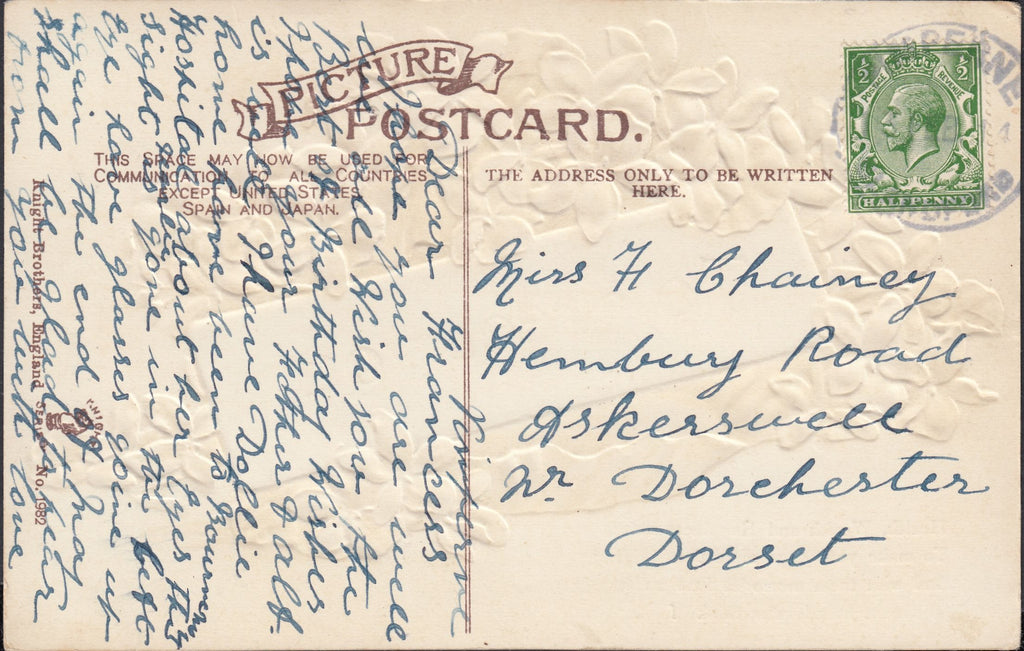 PICTURE
POSTCARD.
THIS SPACE MAY NOW BE USED FOR
COMMUNICATION TO ALL COUNTRIES
EXCEPT UNITED STATES,
SPAIN AND JAPAN.
THE ADDRESS ONLY TO BE WRITTEN
HERE.
1/2 1/2
POSTAGE REVENUE
HALFPENNY
Miss H Chainey
Hembury Road
Askerswell
Nr Dorchester
Dorset
Dear Frances
Hope you are well
We all Wish you the
Best of Birthday Wishes
Your Father & Alf
is I have Dollie
home been to Bournm
Hospital about her Eyes the
sight is gone in the left
Eye have glasses going up
again the end of May
Shall be glad to hear
from you with love
Knight Brothers, England Series No. 1982